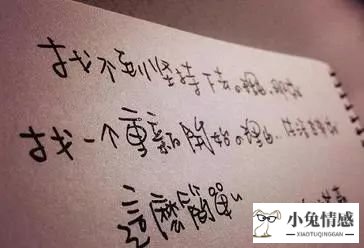 找不到坚持下去的理由，那就
找一个重新開始的理由，生活本来就
這麼簡單
小兔情感
XIAOTUQINGGAN